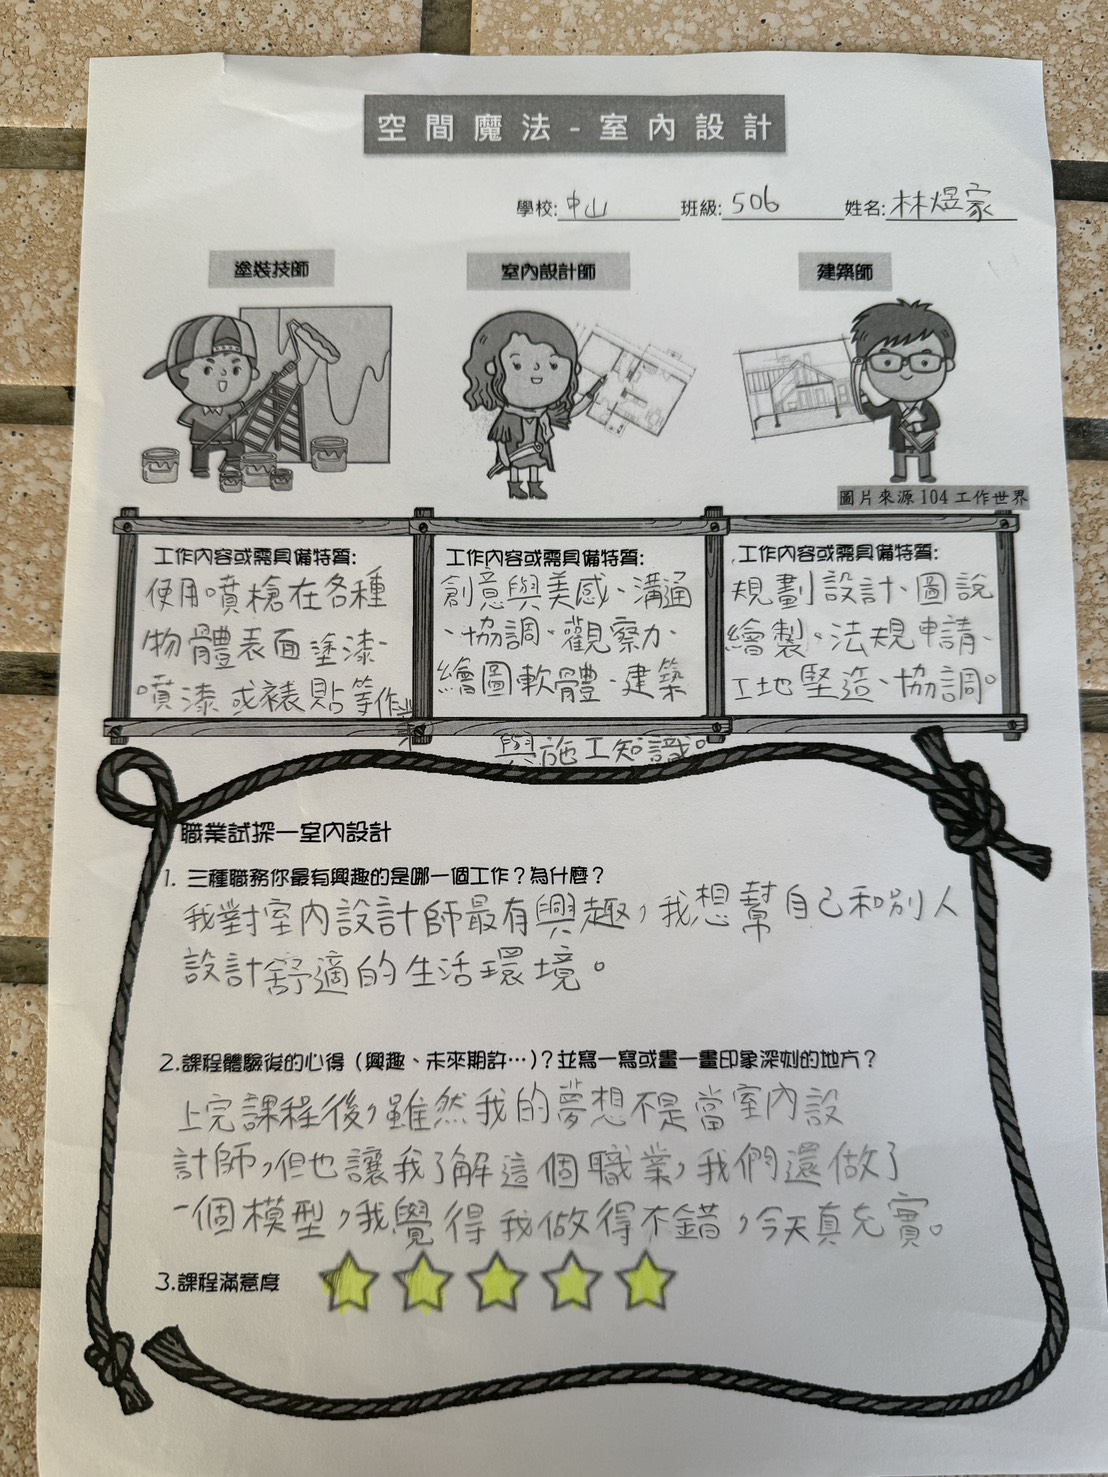 空間魔法-室內設計
學校:中山 班級:506 姓名:林煜家
塗裝技師
室內設計師
建築師
圖片來源 104 工作世界
工作內容或需具備特質:
使用噴槍在各種
物體表面塗漆、
噴漆或裱貼等作業
工作內容或需具備特質:
創意與美感、溝通
、協調、觀察力、
繪圖軟體、建築
與施工知識。
工作內容或需具備特質:
規劃設計、圖說
繪製、法規申請、
工地堅造、協調。
職業試探—室內設計
1. 三種職務你最有興趣的是哪一個工作？為什麼？
我對室內設計師最有興趣，我想幫自己和別人
設計舒適的生活環境。
2.課程體驗後的心得（興趣、未來期許…)？並寫一寫或畫一畫印象深刻的地方？
上完課程後，雖然我的夢想不是當室內設
計師，但也讓我了解這個職業，我們還做了
一個模型，我覺得我做得不錯，今天真充實。
3.課程滿意度